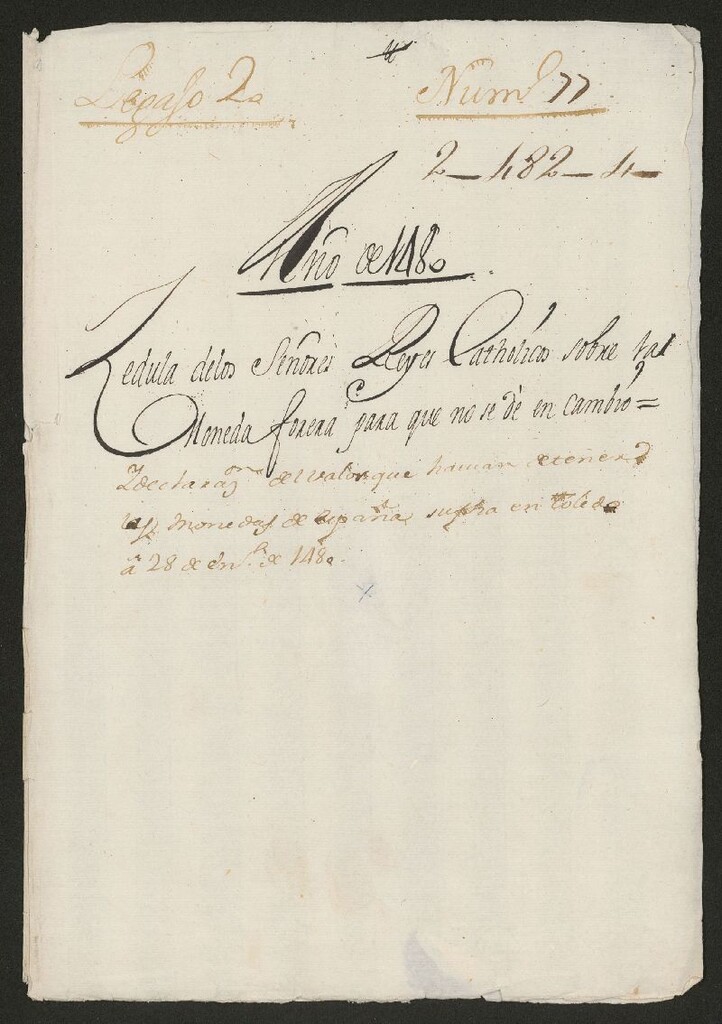 Legajo 2o
Numo 77
2-482-4-
Año de 1480
Zedula delos Señores Reyes Catholicos sobre la
Moneda forera para que no se dè en cambio=
Y declarazon del valor que havian de tener
las Monedas de España su fha en Toledo
a 28 de Enro de 1480.